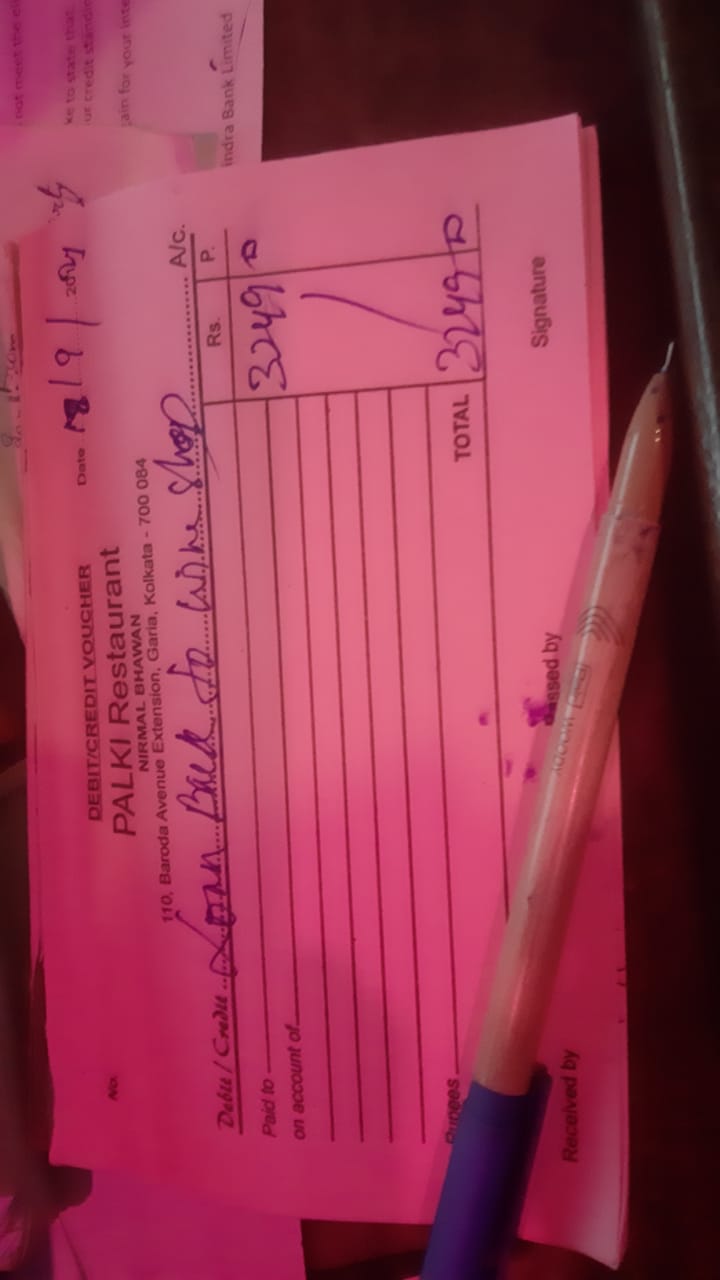 not meet the
ke to state that
ur credit standin
ain for your inte
indra Bank Limited
DEBIT/CREDIT VOUCHER
No.
Date 18/9/2024
PALKI Restaurant
NIRMAL BHAWAN
110, Baroda Avenue Extension, Garia, Kolkata - 700 084
Debit / Credit Loan Back to wine shop A/c.
Rs. P.
Paid to 3249 0
on account of
Rupees TOTAL 3249 0
Received by Passed by Signature